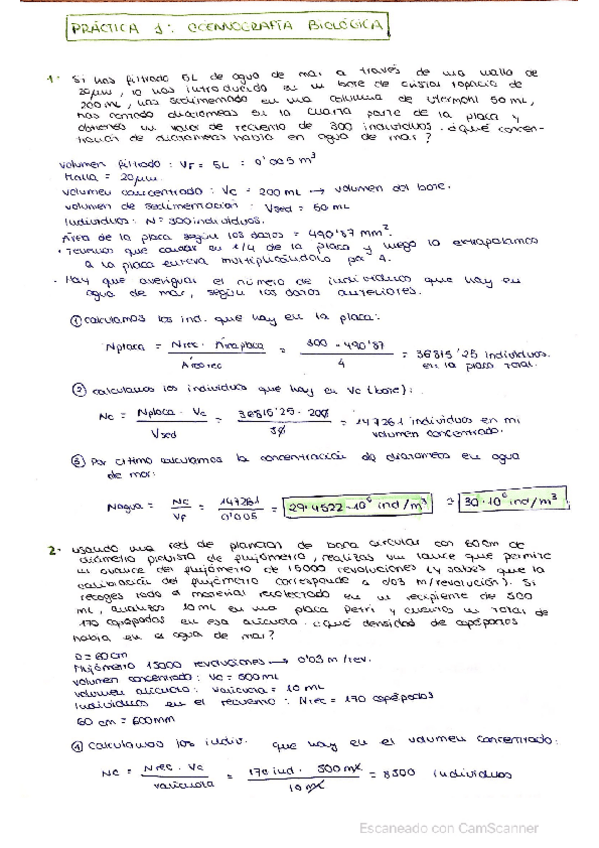 PRÁCTICA 1: OCEANOGRAFÍA BIOLÓGICA
1. Si has filtrado 5L de agua de mar a través de una malla de
20µm, lo has introducido en un bote de cristal topacio de
200 mL, has sedimentado en una columna de Utermohl 50 mL,
has contado diatomeas en la cuarta parte de la placa y
obtienes un valor de recuento de 300 individuos. ¿Qué concen-
tración de diatomeas había en agua de mar?
volumen filtrado : VF = 5L = 0'005 m³
Malla = 20µm.
volumen concentrado : Vc = 200 mL → volumen del bote.
volumen de sedimentación : Vsed = 50 mL
Individuos : N = 300 individuos.
Área de la placa según los datos = 490'87 mm².
· Tenemos que contar en 1/4 de la placa y luego lo extrapolamos
a la placa entera multiplicándolo por 4.
· Hay que averiguar el número de individuos que hay en
agua de mar, según los datos anteriores.
① Calculamos los ind. que hay en la placa:
Nplaca = Nrec · Área placa / Área rec = 300 · 490'87 / 4 = 36815'25 individuos. en la placa total.
② calculamos los individuos que hay en Vc (bote):
Nc = Nplaca · Vc / Vsed = 36815'25 · 200 / 50 = 147261 individuos en mi volumen concentrado.
③ Por último calculamos la concentración de diatomeas en agua
de mar:
Nagua = Nc / VF = 147261 / 0'005 = 29.4522 · 10⁶ ind/m³ ≈ 30 · 10⁶ ind/m³
2. Usando una red de plancton de boca circular con 60 cm de
diámetro provista de flujómetro, realizas un lance que permite
un avance del flujómetro de 15000 revoluciones (y sabes que la
calibración del flujómetro corresponde a 0'03 m/revolución). Si
recoges todo el material recolectado en un recipiente de 500
mL, analizas 10 mL en una placa Petri y cuentas un total de
170 copépodos en esa alícuota. ¿Qué densidad de copépodos
había en el agua de mar?
D = 60 cm
Flujómetro 15000 revoluciones → 0'03 m/rev.
volumen concentrado : Vc = 500 mL
volumen alícuota : Valícuota = 10 mL
Individuos en el recuento : Nrec = 170 copépodos
60 cm = 600mm
① Calculamos los indiv. que hay en el volumen concentrado:
Nc = Nrec · Vc / Valícuota = 170 ind · 500 mL / 10 mL = 8500 individuos
Escaneado con CamScanner